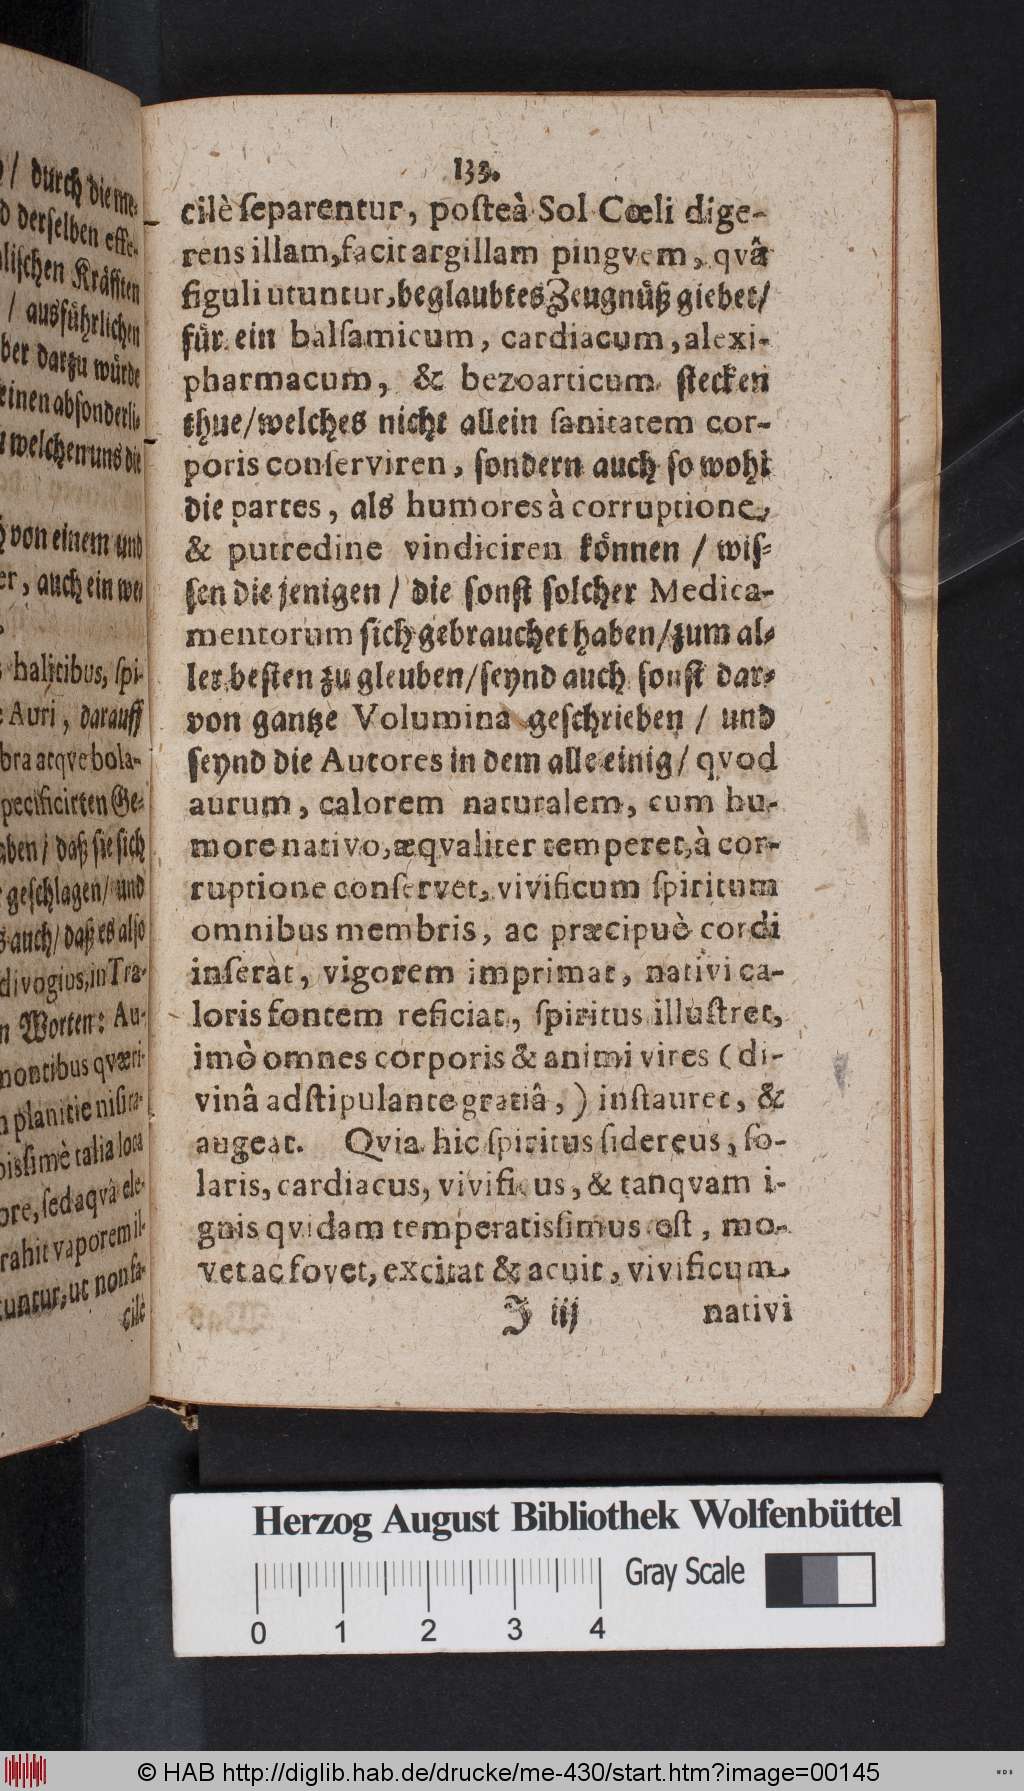 ) / durch die me-
d derselben effe-
alischen Kräfften
/ ausführlichen
ber darzu würde
einen absonderli-
u welchen uns die
h von einem und
er, auch ein wei
halitibus, spi-
e Auri, darauff
bra atqve bola-
pecificirten Ge-
aben / daß sie sich
r geschlagen / und
s auch / daß es also
divogius, in Tra-
n Worten: Au-
montibus qværi-
n planitie nisi ra-
pissimè talia loca
ore, sed aqvâ ele-
rahit vaporem il-
tuntur, ut non fa-
cilè
133.
cilè ſeparentur, poſteà Sol Cœli dige-
rens illam, facit argillam pingvem, qvâ
figuli utuntur, beglaubtes Zeugnüß giebet /
für ein balſamicum, cardiacum, alexi-
pharmacum, & bezoarticum ſtecken
thue / welches nicht allein ſanitatem cor-
poris conſerviren, ſondern auch ſo wohl
die partes, als humores à corruptione,
& putredine vindiciren können / wiſ-
ſen die jenigen / die ſonſt ſolcher Medica-
mentorum ſich gebrauchet haben / zum al-
ler beſten zu gleuben / ſeynd auch ſonſt dar-
von gantze Volumina geſchrieben / und
ſeynd die Autores in dem alle einig / qvod
aurum, calorem naturalem, cum hu-
more nativo, æqvaliter temperet, à cor-
ruptione conſervet, vivificum ſpiritum
omnibus membris, ac præcipuè cordi
inſerat, vigorem imprimat, nativi ca-
loris fontem reficiat, ſpiritus illuſtret,
imò omnes corporis & animi vires (di-
vinâ adſtipulante gratiâ,) inſtauret, &
augeat. Qvia hic ſpiritus ſidereus, ſo-
laris, cardiacus, vivificus, & tanqvam i-
gnis qvidam temperatiſſimus eſt, mo-
vet ac fovet, excitat & acuit, vivificum
J iij nativi
Herzog August Bibliothek Wolfenbüttel
Gray Scale
0 1 2 3 4
© HAB http://diglib.hab.de/drucke/me-430/start.htm?image=00145